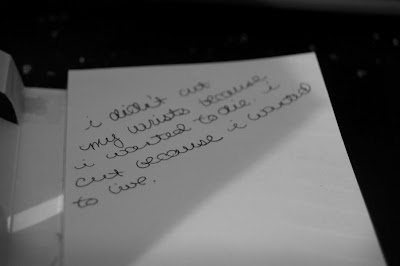 i didn't cut
my wrists because
i wanted to die. i
cut because i wanted
to live.